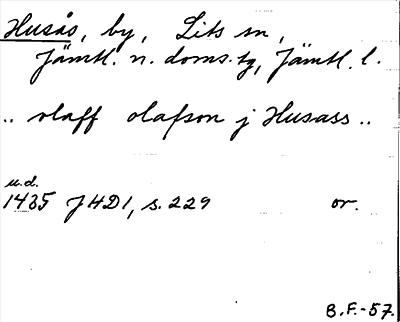 Husås, by, Lits sn,
Jämtl. n. doms.tg, Jämtl. l.
.. olaff olafson j Husass ..
u.d.
1435 JHD1, s. 229 or.
B.F.-57.